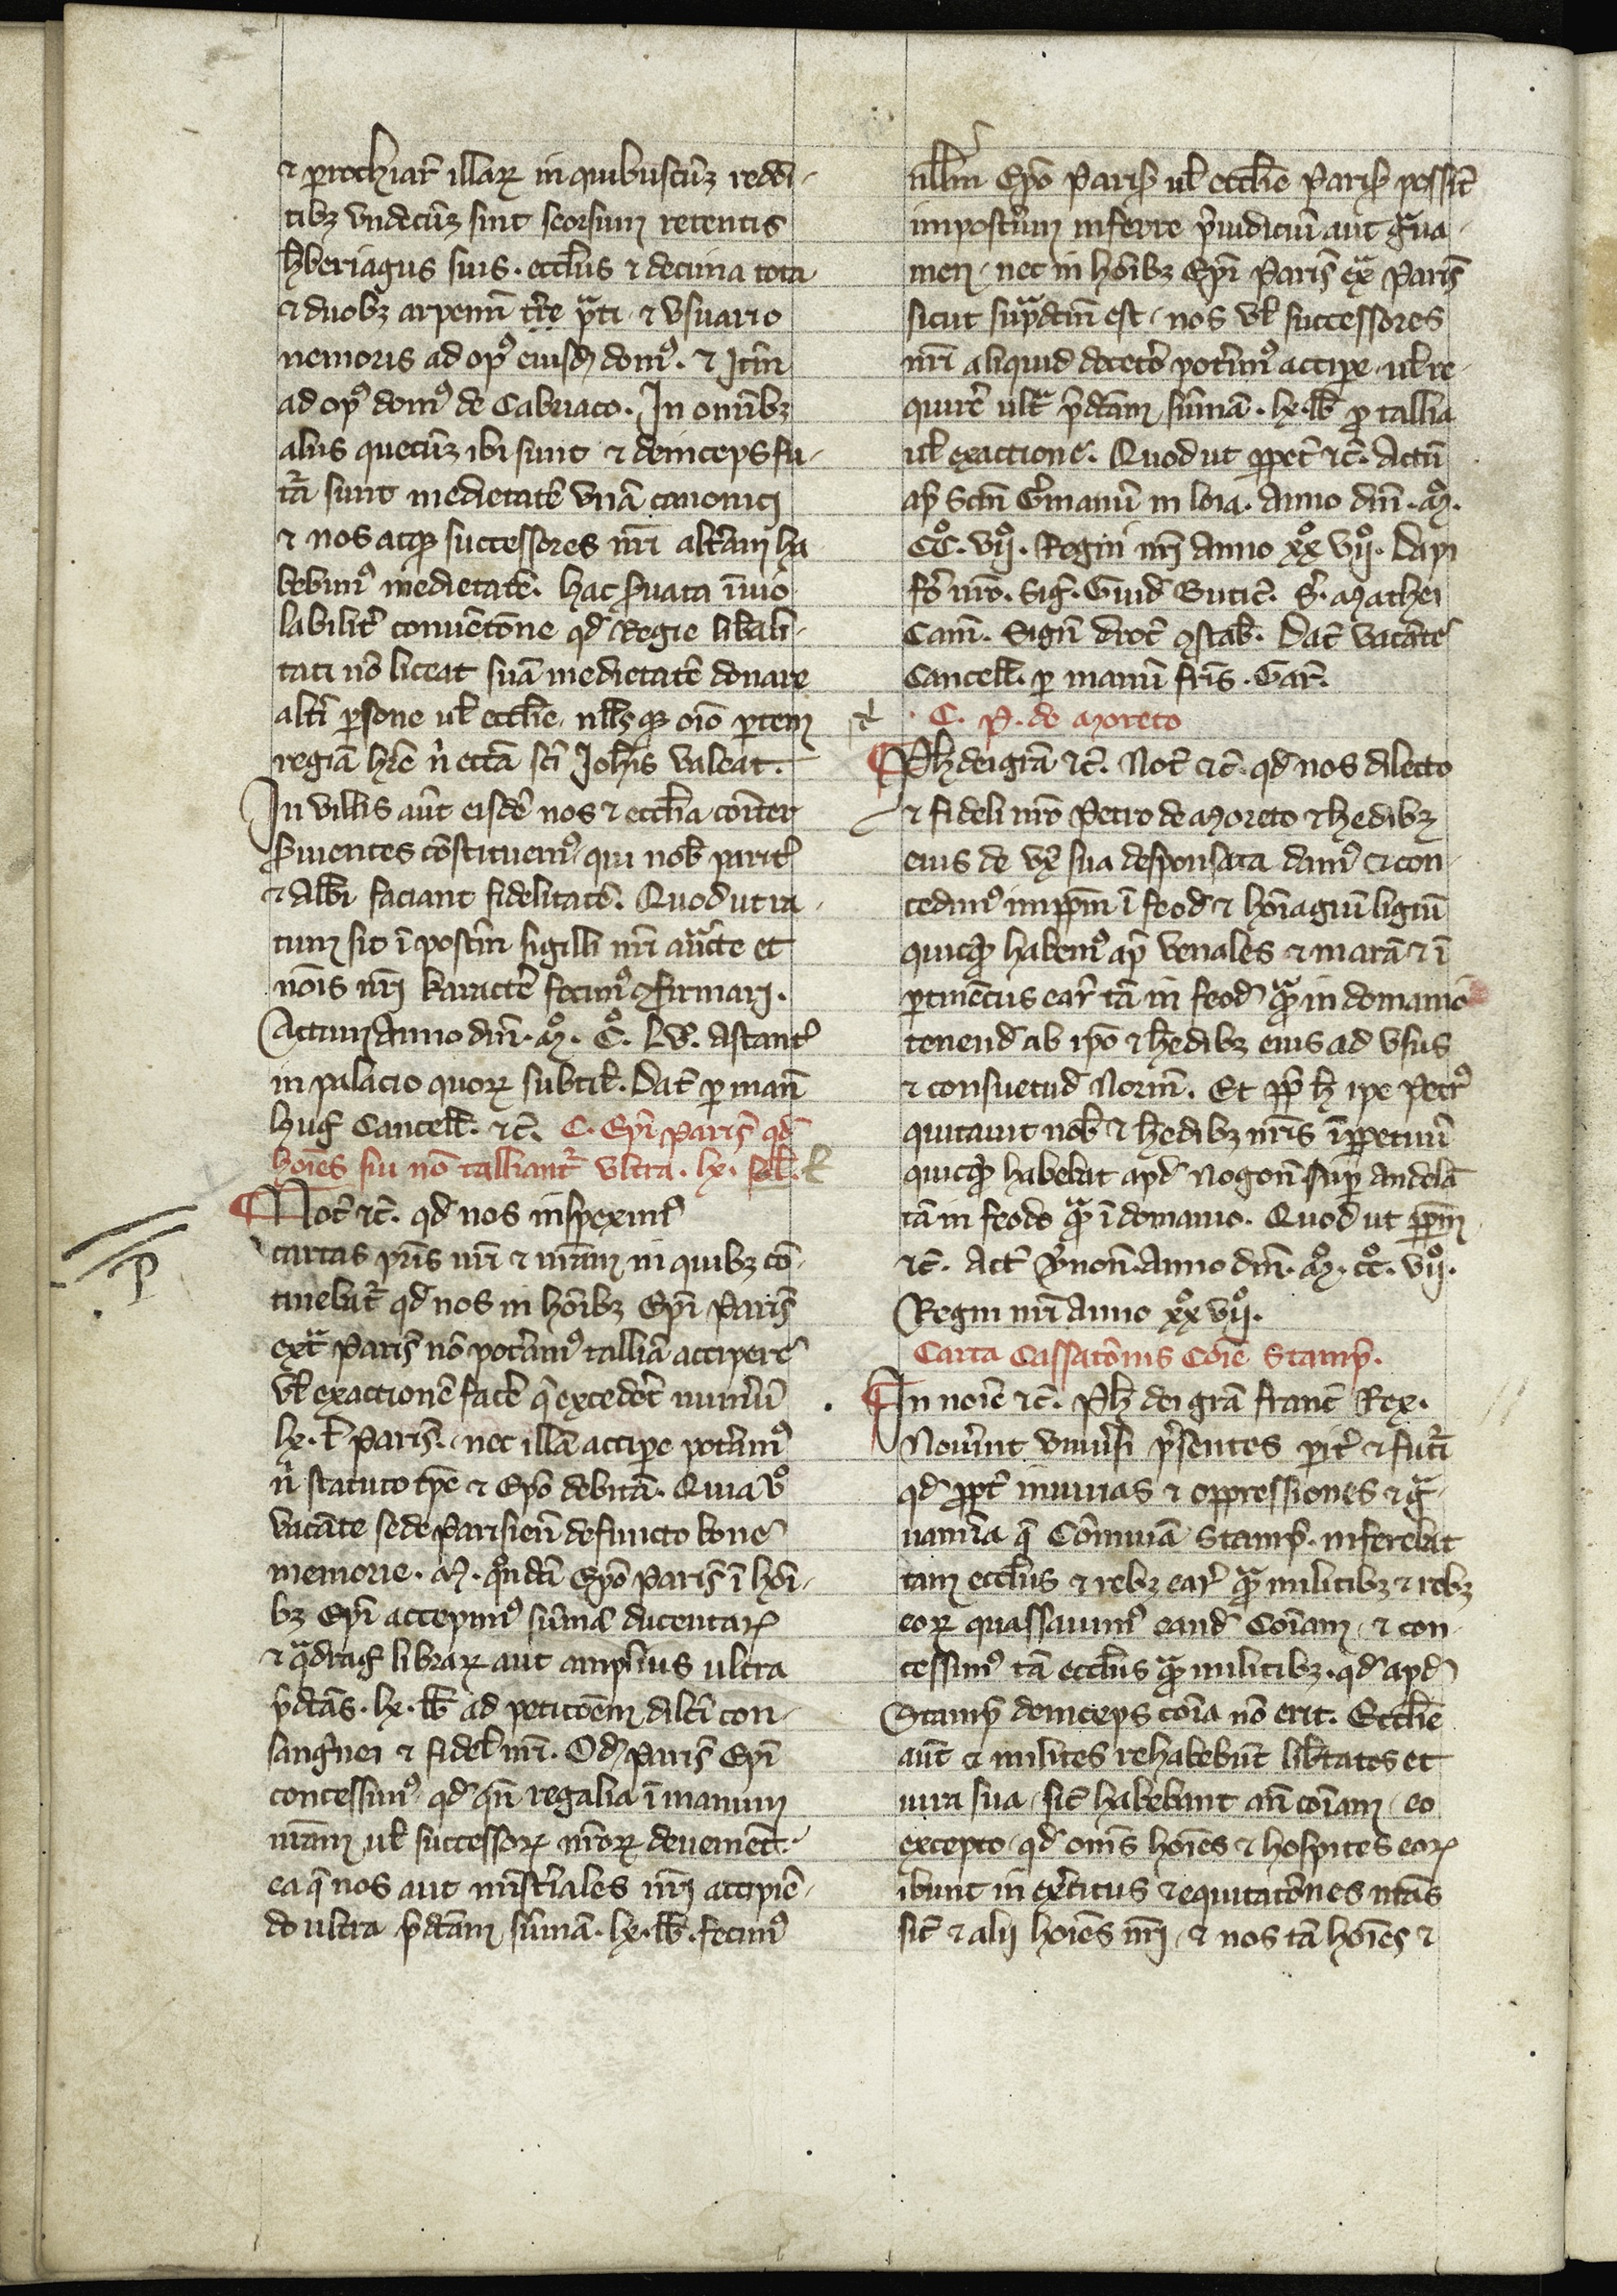 ⁊ parrochiar̄ illaꝝ in quibuscūqꝫ reddi-
tibꝫ vndecūqꝫ sint seorsum retentis
h̄beriagiis suis. eccl̄iis ⁊ decima tota
⁊ duobꝫ arpenn̄ tr̄re p̄ti ⁊ vsuario
nemoris ad opꝰ eiusd̄ domꝰ. ⁊ It̄m
ad opꝰ domꝰ de Cabriaco. In om̄ibꝫ
aliis quecūqꝫ ibi sunt ⁊ deinceps fu-
tr̄a sunt medietatē vnā canonici
⁊ nos atqꝫ successores nr̄i alt̄am ha
bebimꝰ medietatē. hac ẜuata īuio
labilit̄ conuēt̄one qd̄ Regie lib̄ali-
tati nō liceat suā medietatē donare
alt̄i ꝑsone ul̄ eccl̄ie. nll̄sqꝫ oīo ꝑtem
regiā hr̄e n̄ eccl̄ia sc̄i Joh̄is valeat.
In villis aūt eisdē nos ⁊ eccl̄ia com̄iter
ẜuientes cōstituemꝰ. qui nob̄ parit̄
⁊ Abb̄i faciant fidelitatē. Quod ut ra-
tum sit ī post̄m sigilli nr̄i auct̄te et
nōis nr̄i karactē fecimꝰ ꝯfirmari.
Actum Anno dn̄i. mͦ. Cͦ. Lvͦ. astant̄
in palacio quoꝝ subtit̄. Dat̄ ꝑ man̄
huḡ Cancell̄. ⁊c̄. C. Ep̄i Paris̄ qd̄
hoīes sui nō talliant̄ vltra. lx. lib̄.
Not̄ ⁊c̄. qd̄ nos inspeximꝰ
cartas pr̄is nr̄i ⁊ nr̄am in quibꝫ cō-
tinebat̄ qd̄ nos in hoībꝫ Ep̄i Paris̄
ext̄ Paris̄ nō pot̄amꝰ talliā accipere
vl̄ exactionē facē q̄ excedet̄ num̄ū
lx. l̄ Paris̄. nec illā accipe pot̄amꝰ
n̄ statuto tp̄e ⁊ Ep̄o debitā. Quia v̊
vacāte sede Parisien̄ defuncto bone
memorie. M. q̄ndā Ep̄o Paris̄ ī hoī-
bꝫ Ep̄i accepimꝰ sūmā ducentaꝝ
⁊ q̄draḡ libraꝝ aut amplius ultra
p̄dc̄as. lx. lb̄ ad petic̄oem dilc̄i con-
sanḡnei ⁊ fidel̄ nr̄i. Od̄ Paris̄ Ep̄i
concessimꝰ qd̄ qn̄ regalia ī manum
nr̄am ul̄ successoꝝ nr̄oꝝ deuenient.
ea q̄ nos aut mīst̄iales nr̄i accipiē-
do ultra p̄dc̄am sūmā. lx. lb̄. fecimꝰ
nll̄m Ep̄o Paris̄ ul̄ eccl̄ie Paris̄ possit̄
imposterum inferre p̄iudiciū aut g̃ua-
men. nec in hoībꝫ Ep̄i Paris̄ ext̄ Paris̄
sicut sup̄dc̄m est. nos vl̄ successores
nr̄i aliquid decetē pot̄imꝰ accipe. ul̄ re-
quirē ult̄ p̄dc̄am sūmā. lx. lb̄ ꝓ tallia
ul̄ exactione. Quod ut ꝑpet̄ ⁊c̄. Actū
ap̄ Sc̄m Ḡmanū in loia. Anno dn̄i. mͦ.
CCͦ. vijͦ. Regni nr̄i anno xxͦ vijͦ. Dapi
fo̊ nr̄o. Sig̃. Guid̄ Butic̄. S̄. Mathei
Cam̄. Sign̄ droc̄ ꝯstab̄. Dat̄ vacāte
Cancell̄. ꝑ manū fr̄is. Gar̄.
C. P. de Moreto
Ph̄ dei grā ⁊c̄. Not̄ ⁊c̄. qd̄ nos dilecto
⁊ fideli nr̄o Petro de Moreto ⁊ hēdibꝫ
eius de vx̄ sua desponsata damꝰ ⁊ con-
cedimꝰ imꝑpm̄ ī feod̄ ⁊ hōiagiū ligiū
quicq̄d habemꝰ ap̄ venales ⁊ marā ⁊ ī
ꝑtinēciis ear̄ tā in feod̄ q̄ in domanio
tenend̄ ab ip̄o ⁊ hēdibꝫ eius ad vsus
⁊ consuetud̄ Norm̄. Et ꝓp̄ h̄ ip̄e Petrꝰ
quitauit nob̄ ⁊ hēdibꝫ nr̄is īꝑpetuū
quicq̄d habebat apd̄ Nogon̄ suꝑ andelā
tā in feodo q̄ ī domanio. Quod ut ꝑpm̄
⁊c̄. Act̄ V̄non̄. Anno dn̄i. mͦ. ccͦ. vijͦ.
Regni nr̄i Anno xxͦ vijͦ.
Carta Cassatōnis Cōie Stamp̄.
In noīe ⁊c̄. Ph̄ dei grā franc̄ Rex.
Nouīnt vniūsi p̄sentes pit̄ ⁊ fut̄i
qd̄ ꝓpt̄ iniurias ⁊ oppressiones ⁊ g̃-
uamīa q̄ Cōmunia Stamp̄. inferebat
tam eccl̄iis ⁊ rebꝫ ear̄ q̄ militibꝫ ⁊ rebꝫ
eoꝝ quassauimꝰ eand̄ Cōiam. ⁊ con-
cessimꝰ tā eccl̄iis q̄ militibꝫ. qd̄ apd̄
Stamp̄ deinceps cōia nō erit. Eccl̄ie
aūt ⁊ milites rehabebūt lib̄tates et
iura sua. sic̄ habebant an̄ cōiam. eo
excepto qd̄ om̄s hoīes ⁊ hospites eoꝝ
ibunt in ex̄citus ⁊ equitatōnes nr̄as
sic̄ ⁊ alij hoīes nr̄i. ⁊ nos tā hoīes ⁊